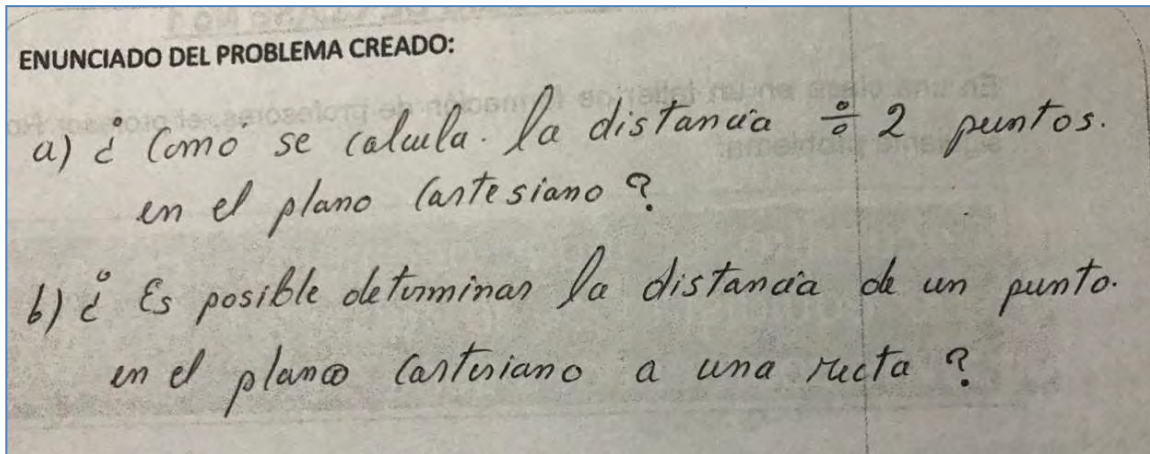 ENUNCIADO DEL PROBLEMA CREADO:
a) ¿Comó se calcula. la distancia ÷ 2 puntos.
en el plano Cartesiano?
b) ¿Es posible determinar la distancia de un punto.
en el plano Cartesiano a una recta?